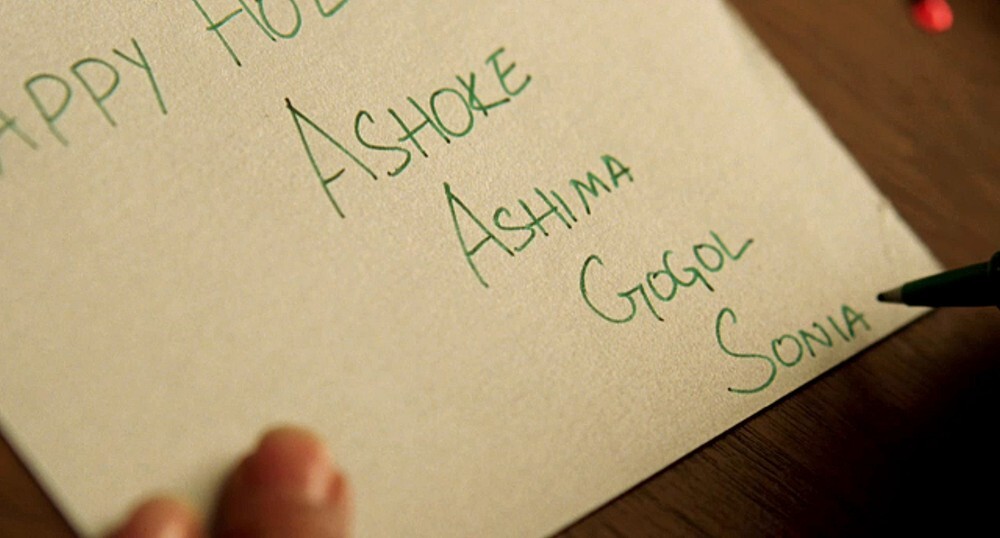 APPY HOL
ASHOKE
ASHIMA
GOGOL
SONIA